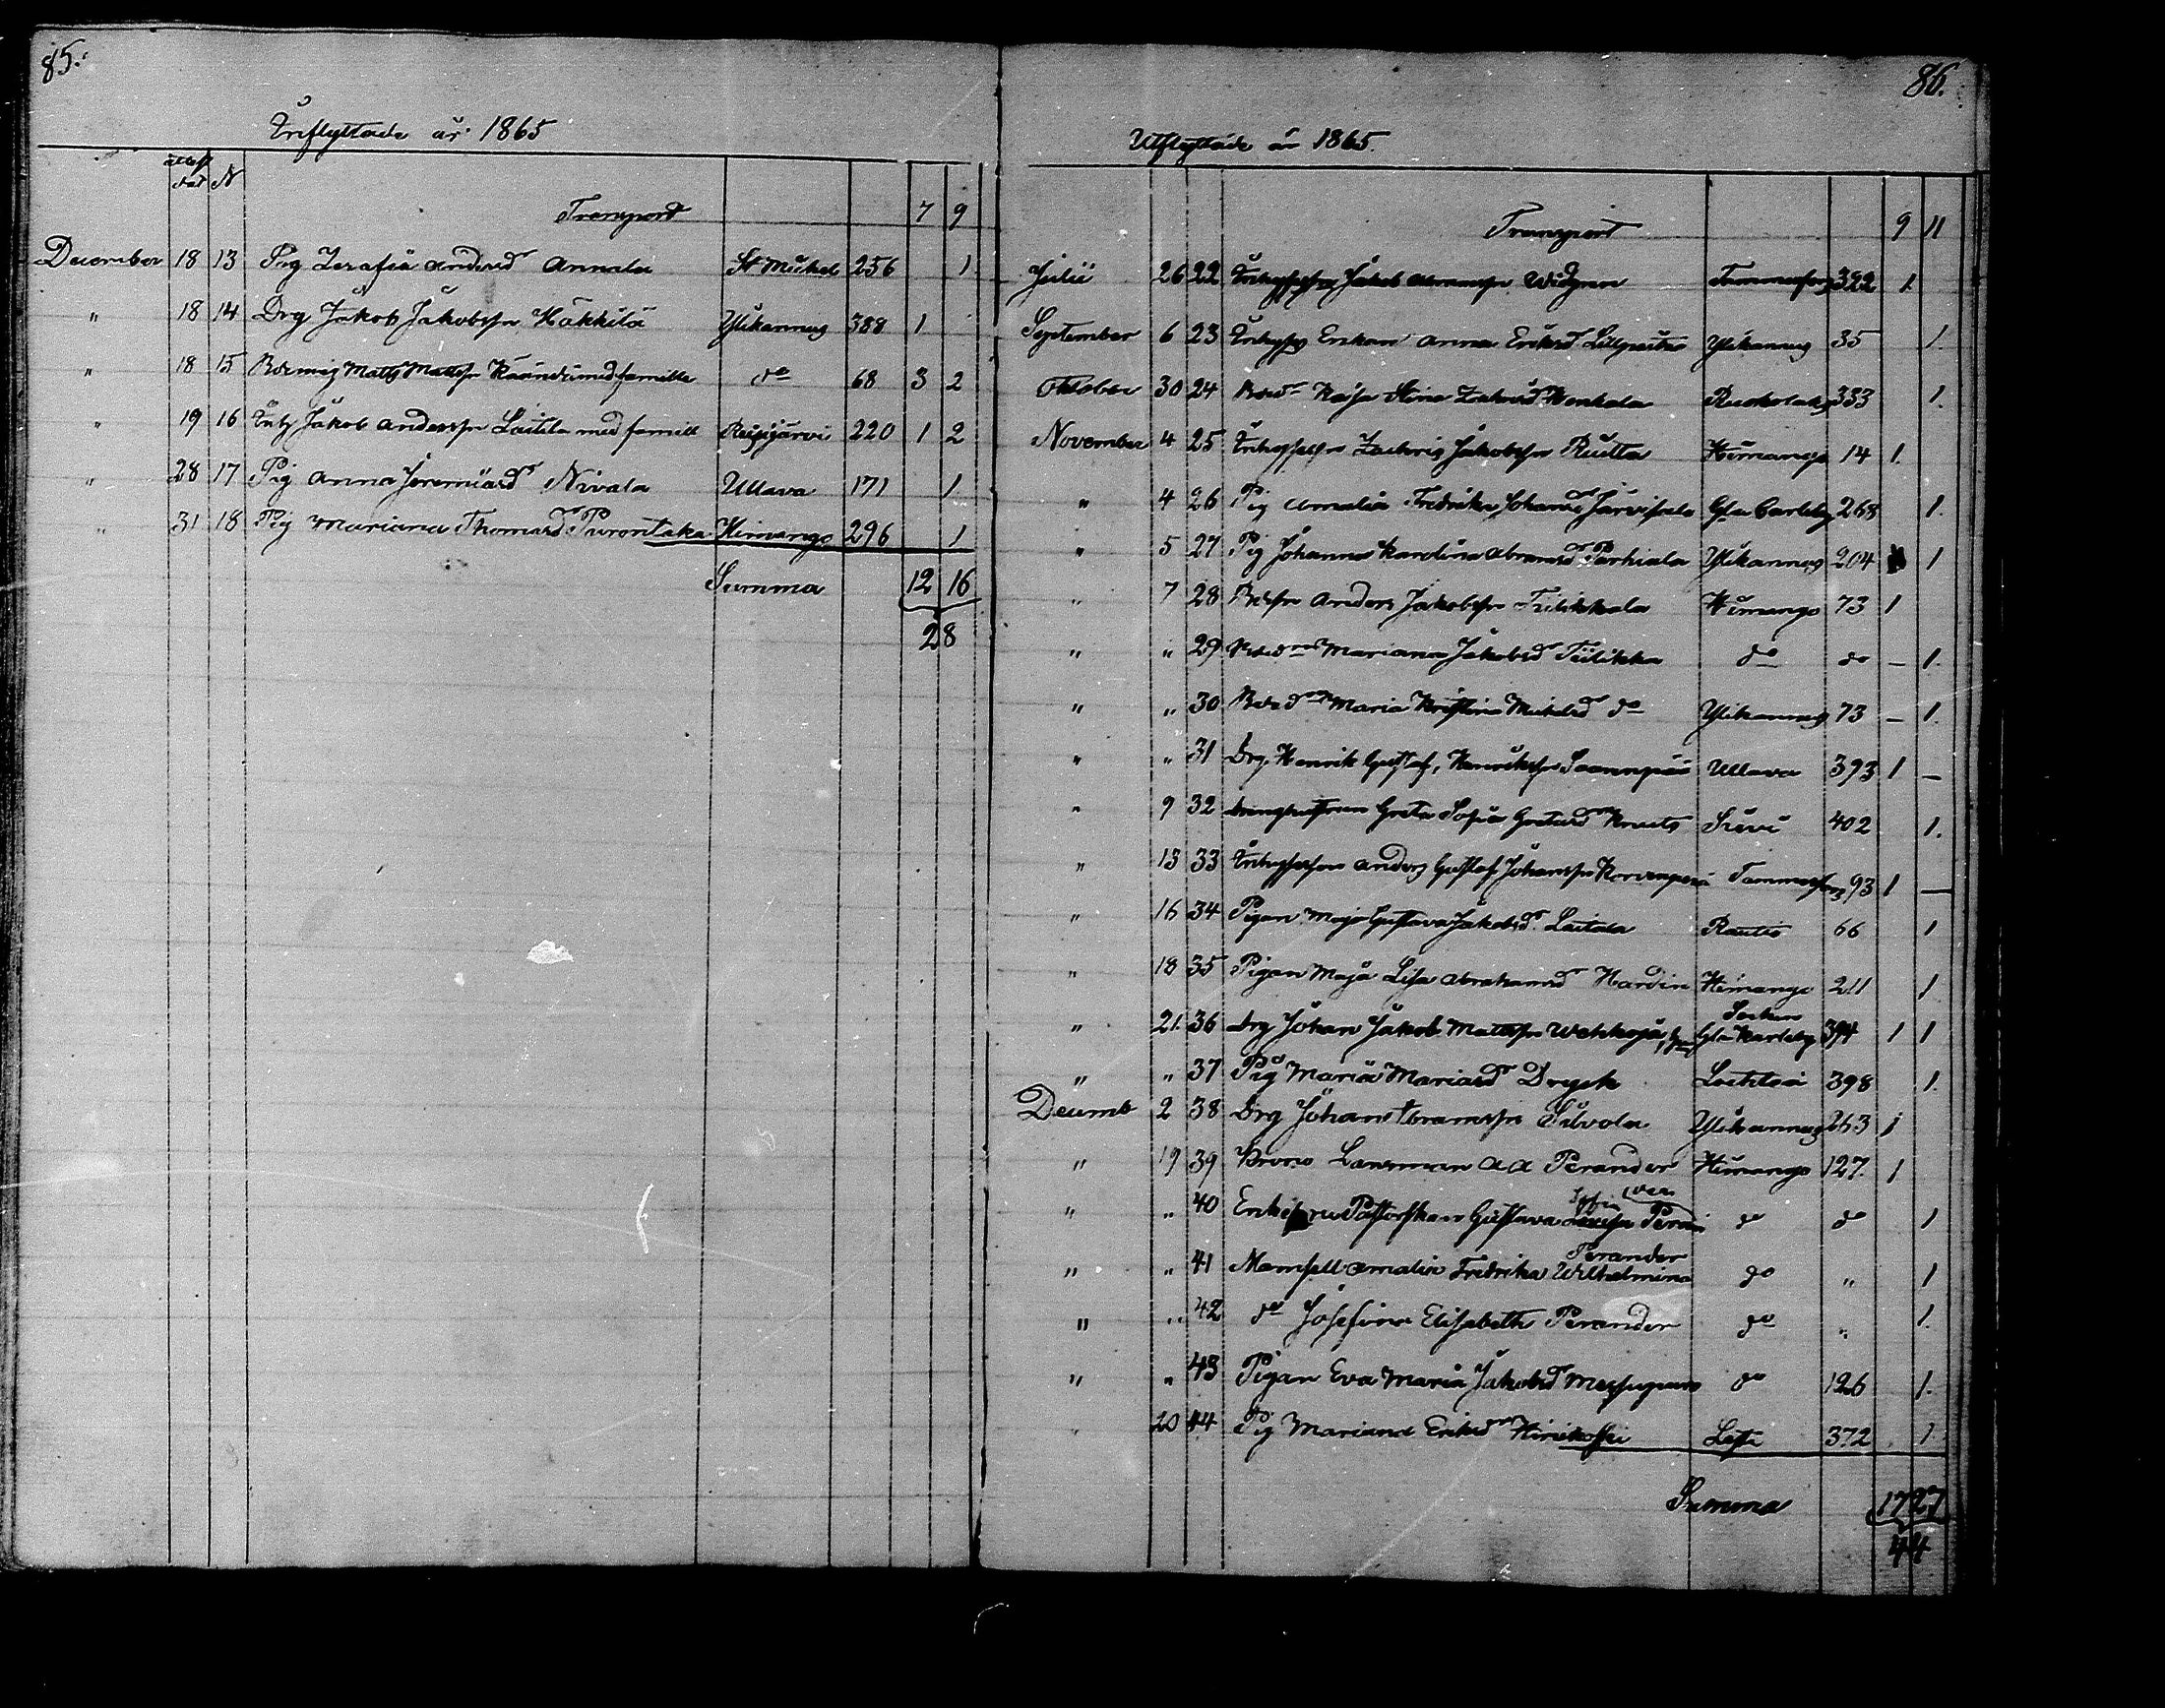 85.
Inflyttade år 1865
dat N
Transport 7 9
December 18 13 Pig Serafia Andersd Annala St Michel 256 1
" 18 14 Drg Jakob Jakobsson Häkkilä Ylikannus 388 1
" 18 15 Matts Mattss med familie do 68 3 2
" 19 16 Inh Jakob Anderssn Laitila med famill Reisjärvi 220 1 2
" 28 17 Pig Anna Jeremiasd Nivala Ullava 171 1
" 31 18 Pig Mariana Thomasd Purontaka Himango 296 1
Summa 12 16
28
86.
Utflyttade år 1865.
Transport 9 11
Julii 26 22 Jakob Abramssn Widgren Tammerfors 322 1
September 6 23 Enkan Anna Eriksd Ylikannus 35 1.
Oktober 30 24 Kajsa Stina 333 1.
November 4 25 Zachris Jakobssn Himango 14 1.
" 4 26 Pig Amalia Fredrika Johansd Gla Carleby 268 1.
" 5 27 Pig Johanna Karolina Abramsd Parhiala Ylikannus 204 1
" 7 28 Anders Jakobssn Tiilikkala Himango 73 1
" " 29 Mariana Jakobsd Tiilikka do do — 1.
" " 30 Maria Kristina Mikelsd do Ylikannus 73 — 1.
" " 31 Drg Henrik Gustaf, Henrikssn Ullava 393 1 —
" 9 32 Greta Sofia Sievi 402 1.
" 13 33 Anders Gustaf Johanssn Korvenperä Tammerfors 93 1 —
" 16 34 Pigan Maja Gustava Jakobsd. Laitala Rautio 66 1
" 18 35 Pigan Maja Lisa Abrahamsd Hardin Himango 211 1
" 21. 36 Drg Johan Jakob Mattssn Gla Karleby Socken 394 1 1
" " 37 Pig Maria Mariasd Dryck Lochteå 398 1.
Decemb 2 38 Drg Johan Abramssn Silvola Ylikannus 263 1
" 19 39 Krono Länsman A A Perander Himango 127. 1
" " 40 Enkefru Pastorskan Gustava Sofia Perander do do 1
" " 41 Mamsell Amalia Fredrika Wilhelmina Perander do " 1
" " 42 do Josefina Elisabeth Perander do " 1.
" " 43 Pigan Eva Maria Jakobsd do 126 1.
" 20 44 Pig Mariana Eriksd Hirvikoski 372 1.
Summa 17 27
44